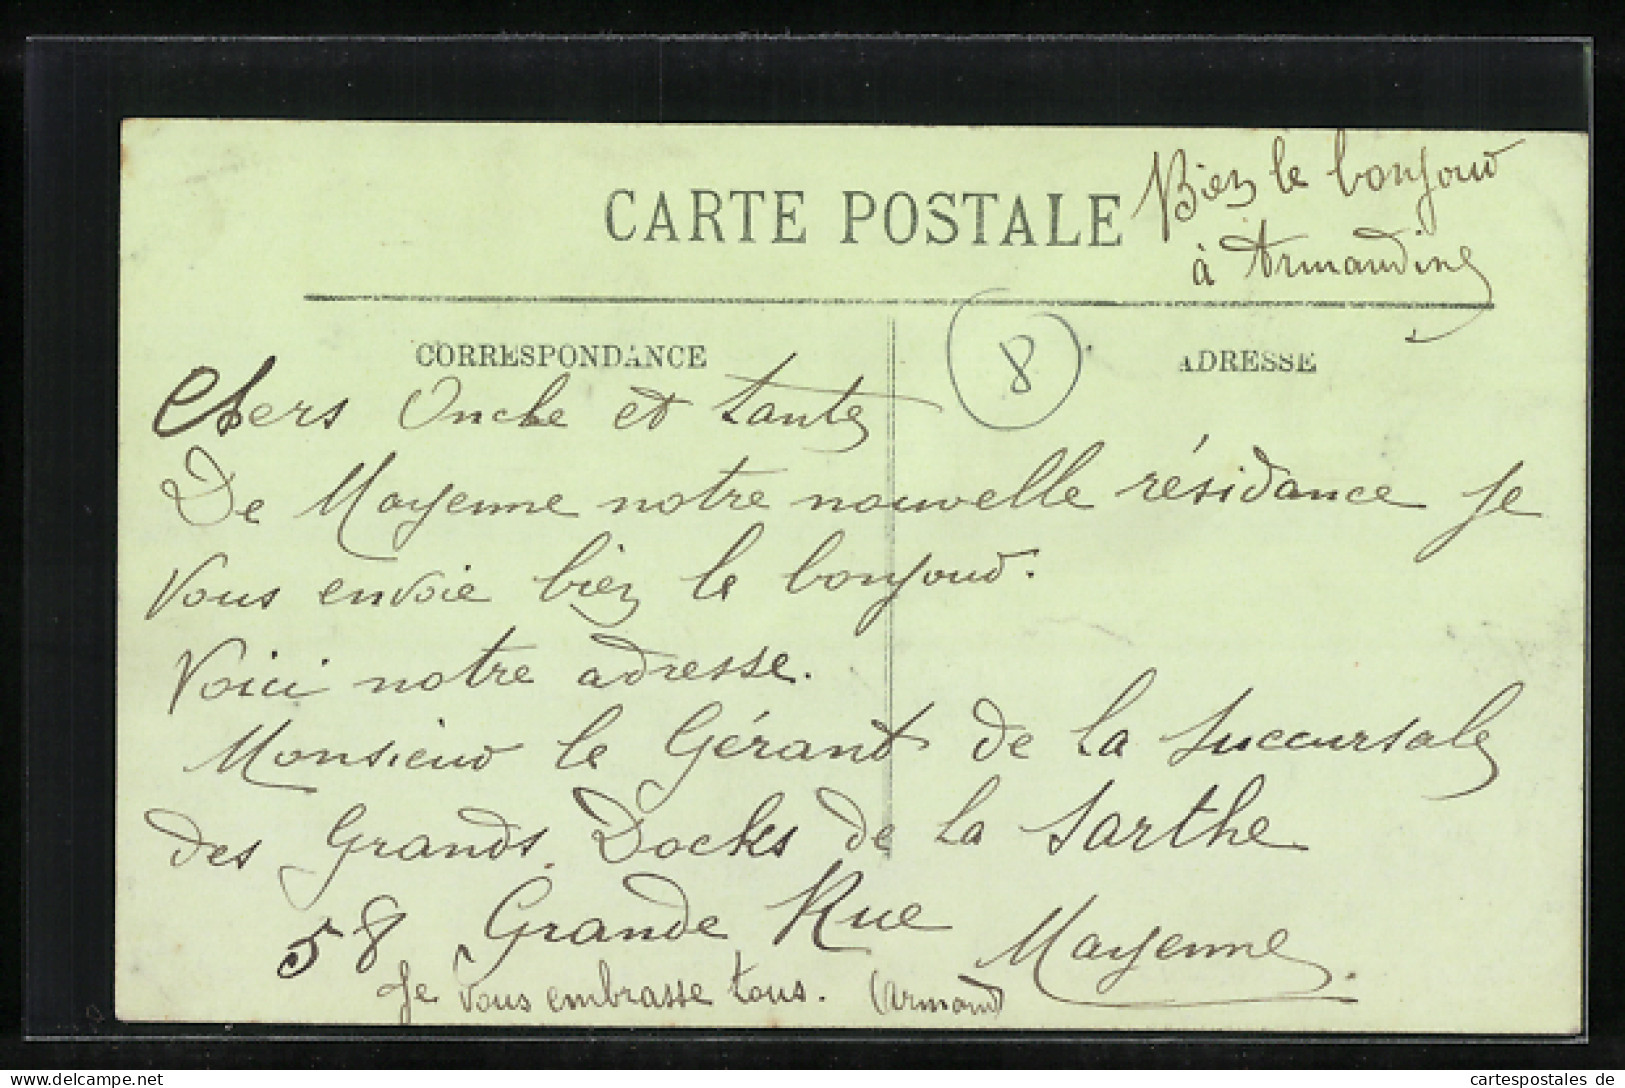 Bien le bonjour
à Armandine
CARTE POSTALE
CORRESPONDANCE
8
ADRESSE
Chers Oncle et Tante
De Mayenne notre nouvelle résidance je
vous envoie bien le bonjour.
Voici notre adresse.
Monsieur le Gérant de la Succursale
des Grands Docks de la Sarthe
58 Grande Rue Mayenne.
Je vous embrasse tous. (Armand)
hippostcard.com - the item's number